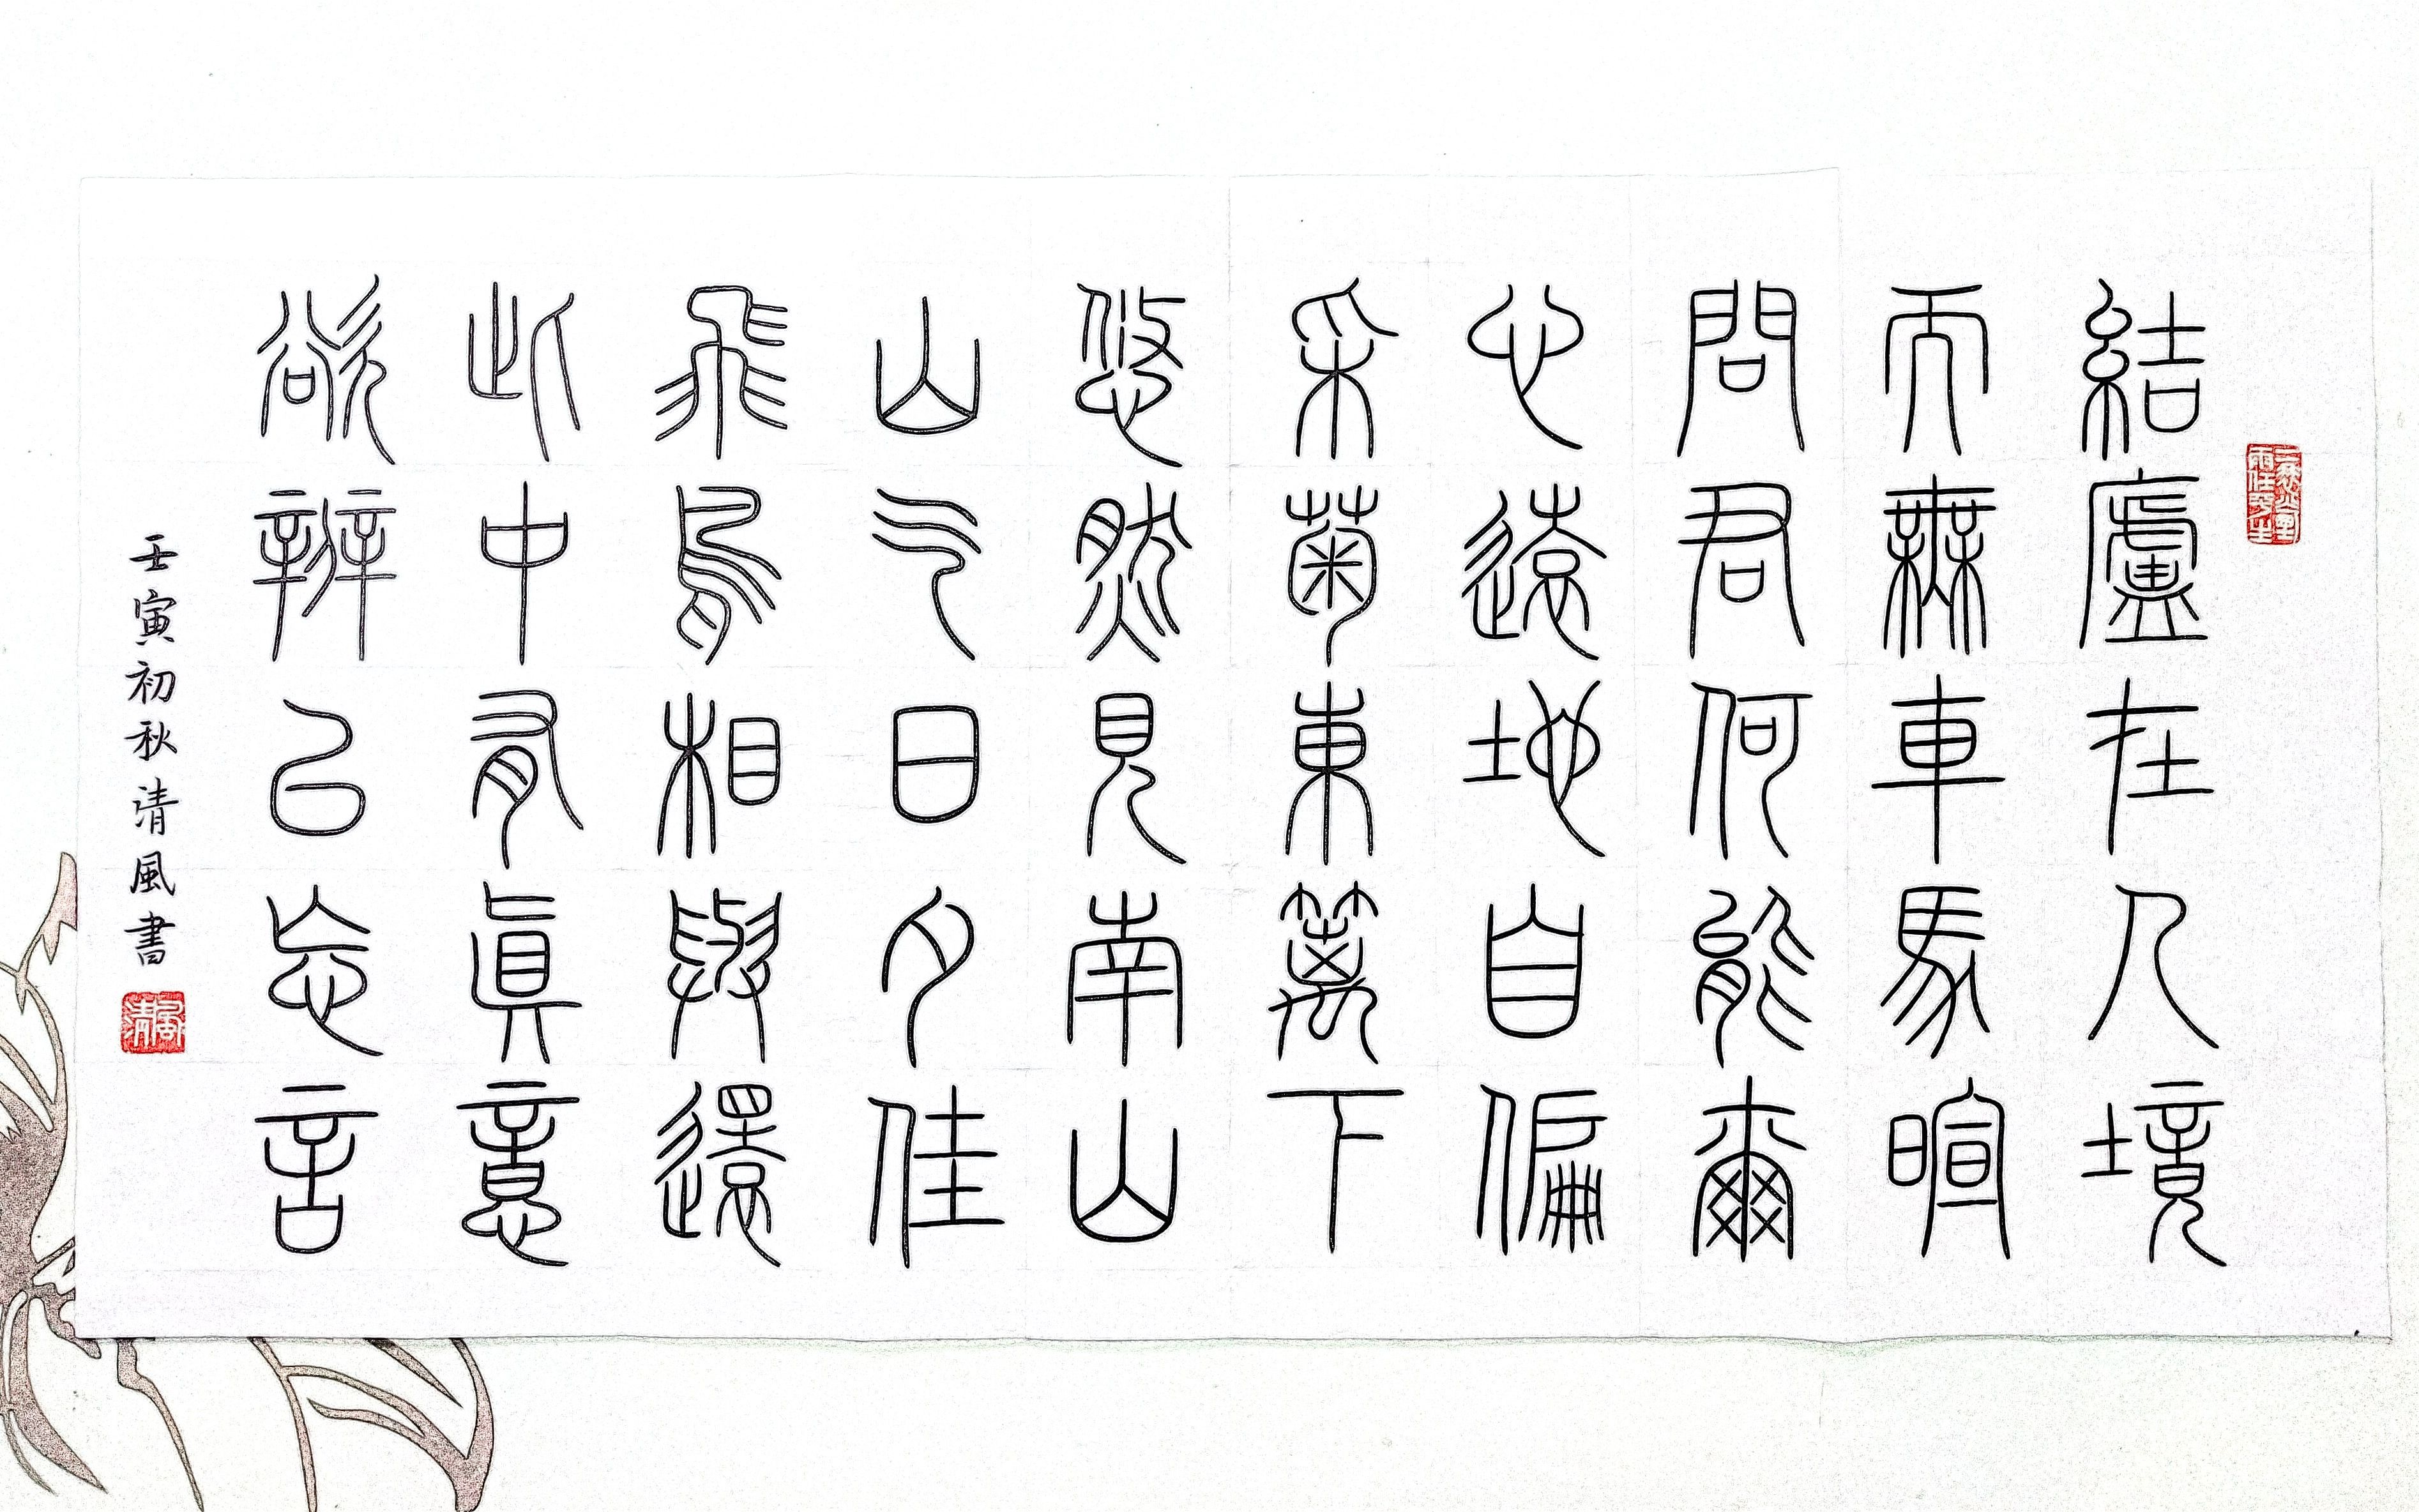 結廬在人境
而無車馬暄
問君何能爾
心遠地自偏
采菊東篱下
悠然見南山
山气日夕佳
飛鳥相與還
此中有眞意
欲辨已忘言
壬寅初秋清風書
清風